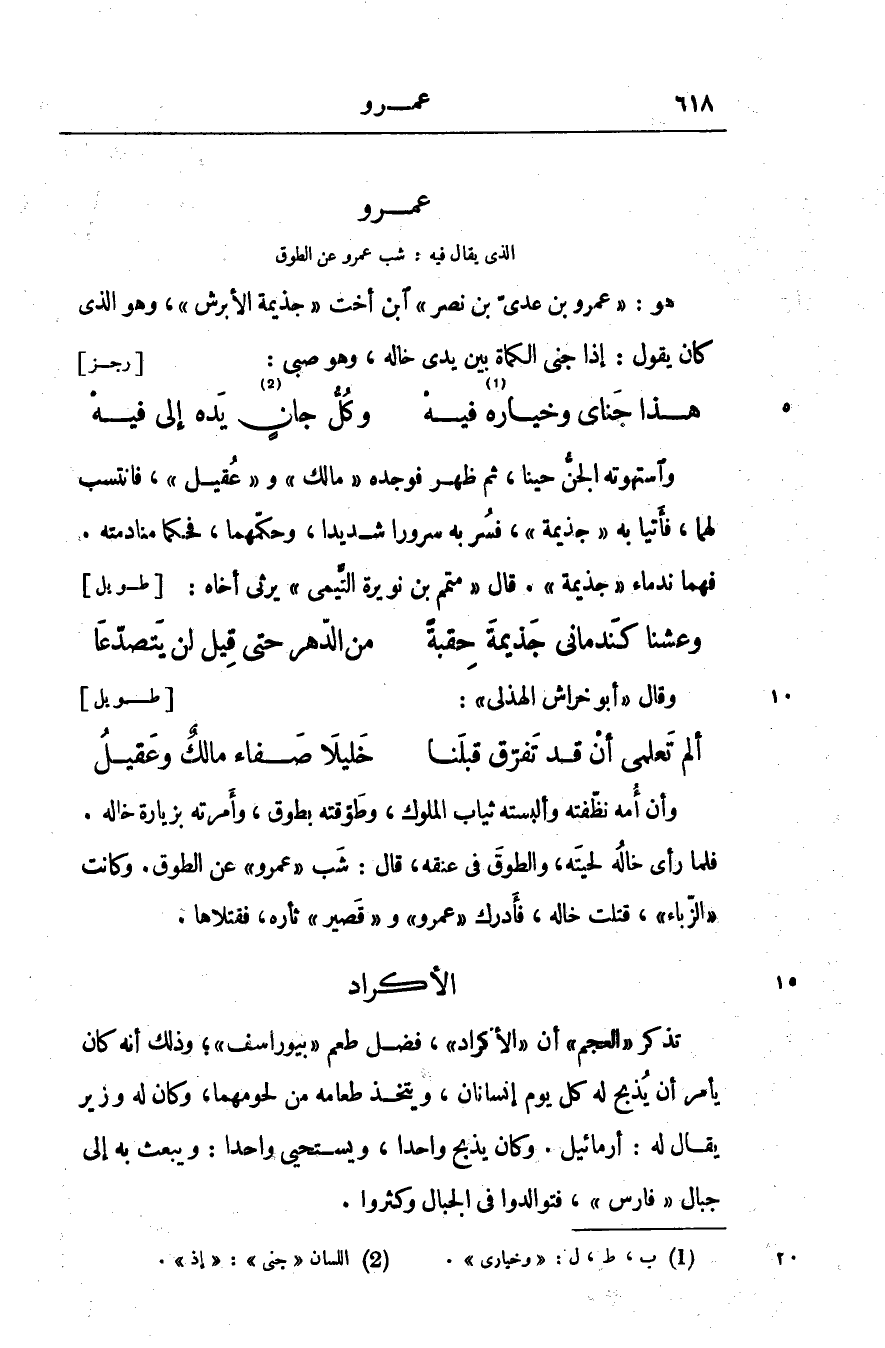 ٦١٨ عمـرو
عمـرو
الذى يقال فيه : شب عمرو عن الطوق
هو : « عمرو بن عدىّ بن نصر » آبن أخت « جذيمة الأبرش » ، وهو الذى
كان يقول : إذا جنى الكمأة بين يدى خاله ، وهو صبى : [ رجـز ]
هـذا جَناى وخيـاره(1) فيـهْ وكلُّ جانٍ(2) يَده إلى فيـهْ ٥
وآستهوته الجنُّ حينا ، ثم ظهـر فوجده « مالك » و « عُقيـل » ، فانتسب
لهما ، فأَتيا به « جذيمة » ، فسُر به سرورا شـديدا ، وحكّمهما ، فحكما منادمته .
فهما ندماء « جذيمة » . قال « متمم بن نويرة التَّيمى » يرثى أخاه : [ طـويل ]
وعشنا كنَدمانى جَذيمةَ حِقبةً من الدّهر حتى قِيل لن يَتصدّعَا
وقال « أبو خراش الهذلى » : [ طـويل ] ١٠
ألم تَعلمى أنْ قـد تَفرّق قبلَنـا خَليلَا صَـفاء مالكٌ وعَقيـلُ
وأن أُمه نظّفته وألبسته ثياب الملوك ، وطَوّقته بطوق ، وأَمرته بزيارة خاله .
فلما رأى خالُه لحيتَه ، والطوقَ فى عنقه ، قال : شَب « عمرو » عن الطوق . وكانت
« الزّباء » ، قتلت خاله ، فأَدرك « عمرو » و « قَصير » ثأره ، فقتلاها .
الأكـراد ١٥
تذكر « العجم » أن « الأكراد » ، فضـل طعم « بيوراسف » ؛ وذلك أنه كان
يأمر أن يُذبح له كل يوم إنسانان ، ويتخـذ طعامه من لحومهما ، وكان له وزير
يقـال له : أرمائيل . وكان يذبح واحدا ، ويسـتحيى واحدا : ويبعث به إلى
جبال « فارس » ، فتوالدوا فى الجبال وكثروا .
(1) ب ، ط ، ل : « وخيارى » . (2) اللسان « جنى » : « إذ » . ٢٠